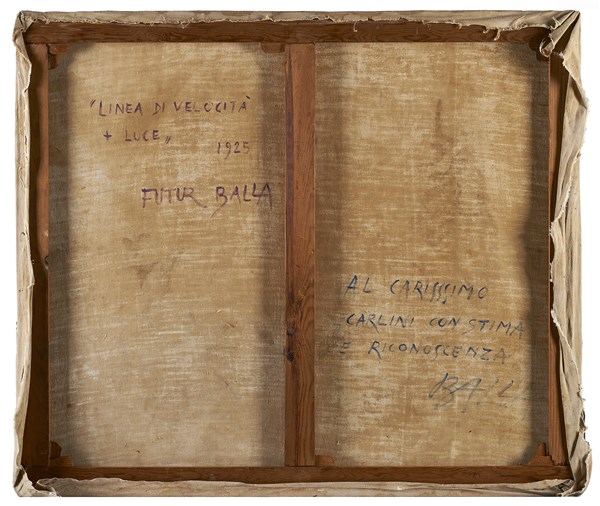 "LINEA DI VELOCITÀ
+ LUCE„
1925
FUTUR BALLA
AL CARISSIMO
CARLINI CON STIMA
E RICONOSCENZA
BALLA